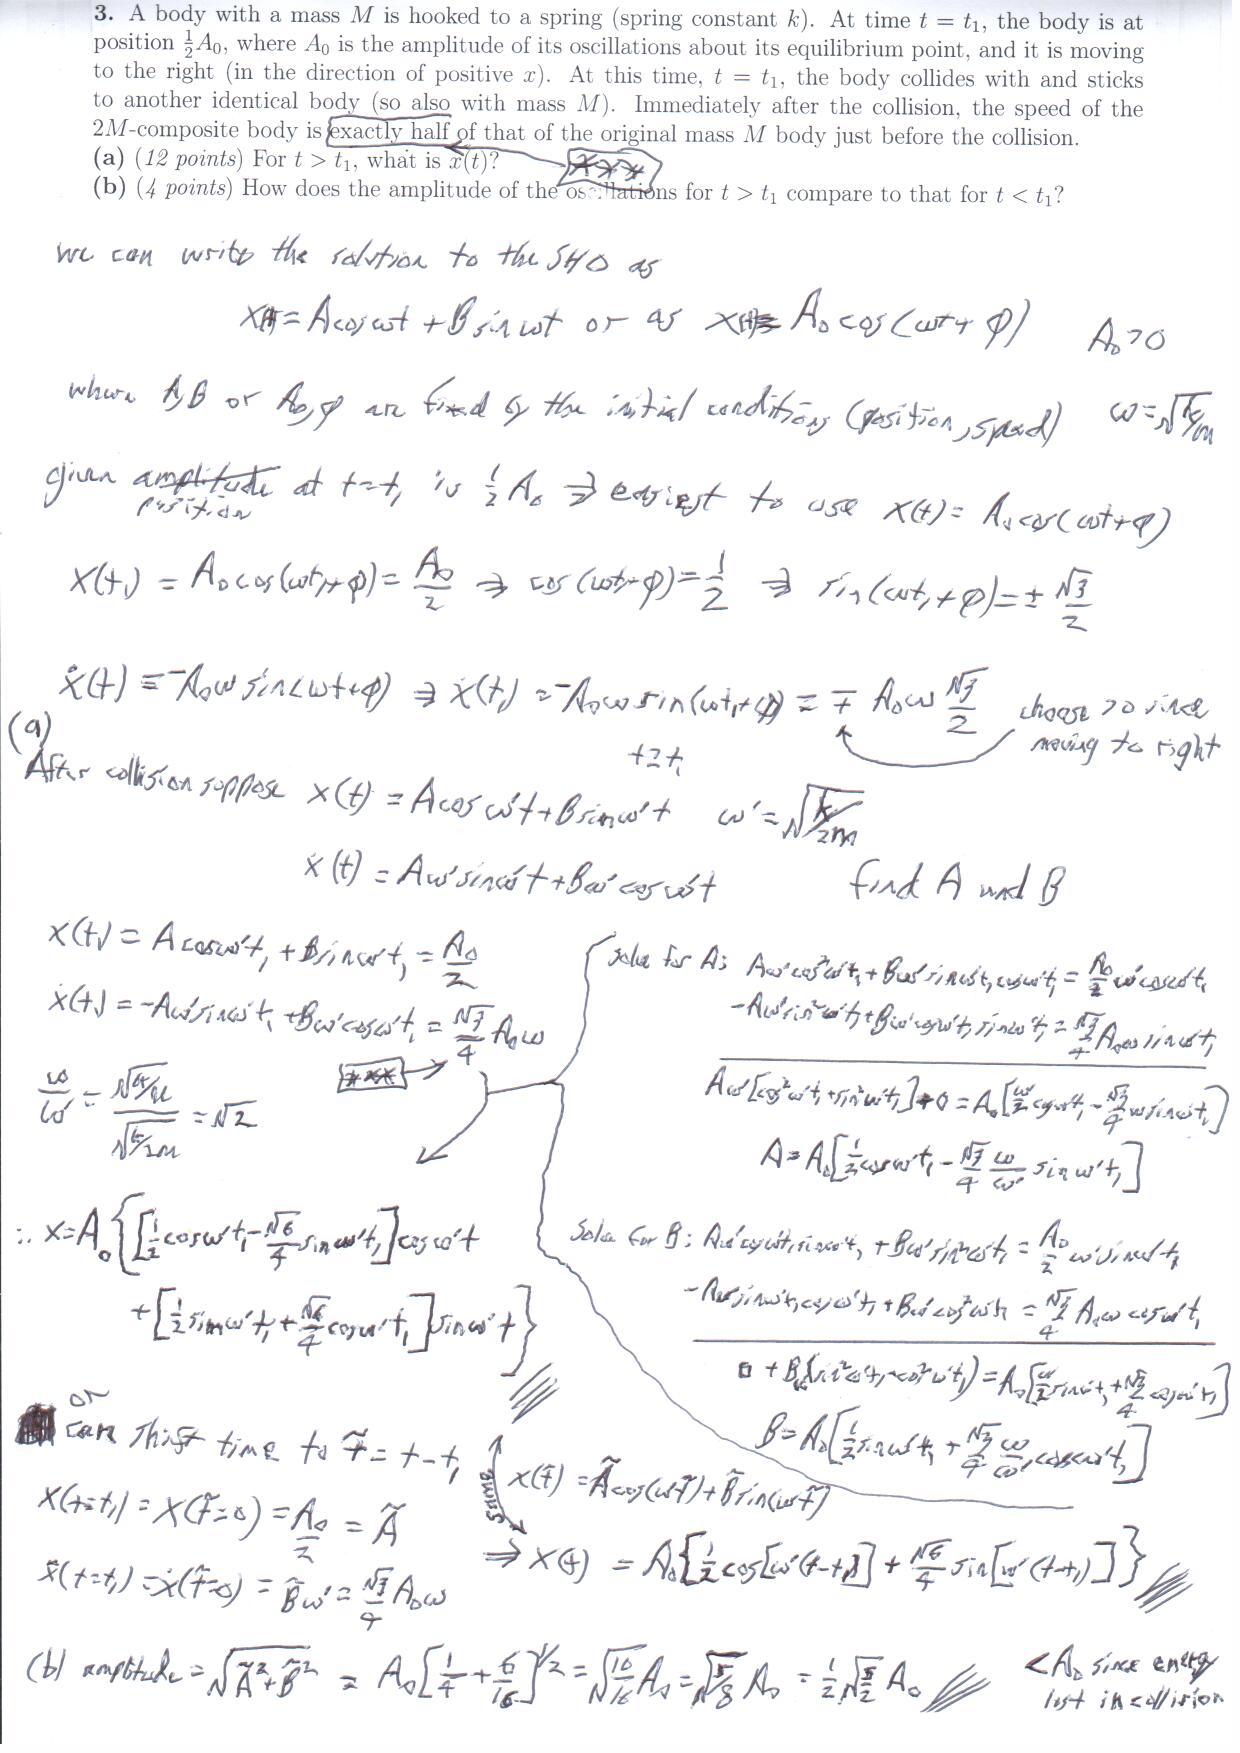 3. A body with a mass M is hooked to a spring (spring constant k). At time t = t₁, the body is at
position ½A₀, where A₀ is the amplitude of its oscillations about its equilibrium point, and it is moving
to the right (in the direction of positive x). At this time, t = t₁, the body collides with and sticks
to another identical body (so also with mass M). Immediately after the collision, the speed of the
2M-composite body is exactly half of that of the original mass M body just before the collision.
(a) (12 points) For t > t₁, what is x(t)?
***
(b) (4 points) How does the amplitude of the oscillations for t > t₁ compare to that for t < t₁?
we can write the solution to the SHO as
x(t) = A cos ωt + B sin ωt or as x(t) = A₀ cos(ωt + φ) A₀ > 0
where A, B or A₀, φ are fixed by the initial conditions (position, speed) ω = √(k/m)
given position at t=t₁ is ½ A₀ ⇒ easiest to use x(t) = A₀ cos(ωt+φ)
x(t₁) = A₀ cos(ωt₁+φ) = A₀/2 ⇒ cos(ωt₁+φ) = 1/2 ⇒ sin(ωt₁+φ) = ± √3/2
ẋ(t) = -A₀ω sin(ωt+φ) ⇒ ẋ(t₁) = -A₀ω sin(ωt₁+φ) = ∓ A₀ω √3/2 choose >0 since
moving to right
(a)
t≥t₁
After collision suppose x(t) = A cos ω't + B sin ω't ω' = √(k/2m)
ẋ(t) = Aω' sin ω't + Bω' cos ω't find A and B
x(t₁) = A cos ω't₁ + B sin ω't₁ = A₀/2
ẋ(t₁) = -Aω' sin ω't₁ + Bω' cos ω't₁ = √3/4 A₀ω
***
ω/ω' = √(k/m)/√(k/2m) = √2
solve for A: Aω' cos² ω't₁ + Bω' sin ω't₁ cos ω't₁ = A₀/2 ω' cos ω't₁
-Aω' sin² ω't₁ + Bω' cos ω't₁ sin ω't₁ = √3/4 A₀ω sin ω't₁
Aω' [cos² ω't₁ + sin² ω't₁] + 0 = A₀[ω'/2 cos ω't₁ - √3/4 ω sin ω't₁]
A = A₀[½ cos ω't₁ - √3/4 ω/ω' sin ω't₁]
∴ x = A₀{[½ cos ω't₁ - √6/4 sin ω't₁] cos ω't
+ [½ sin ω't₁ + √6/4 cos ω't₁] sin ω't}
Solve for B: Aω' cos ω't₁ sin ω't₁ + Bω' sin² ω't₁ = A₀/2 ω' sin ω't₁
-Aω' sin ω't₁ cos ω't₁ + Bω' cos² ω't₁ = √3/4 A₀ω cos ω't₁
0 + Bω'(sin² ω't₁ + cos² ω't₁) = A₀[ω'/2 sin ω't₁ + √3/4 ω cos ω't₁]
B = A₀[½ sin ω't₁ + √3/4 ω/ω' cos ω't₁]
or
can shift time to t̃ = t - t₁ x(t̃) = Ã cos(ωt̃) + B̃ sin(ωt̃)
same
x(t=t₁) = x(t̃=0) = A₀/2 = Ã
⇒ x(t) = A₀{½ cos[ω'(t-t₁)] + √6/4 sin[ω'(t-t₁)]}
ẋ(t=t₁) = ẋ(t̃=0) = B̃ω' = √3/4 A₀ω
(b) amplitude = √(Ã² + B̃²) = A₀[1/4 + 6/16]^1/2 = √(10/16) A₀ = √(5/8) A₀ = ½ √(5/2) A₀ < A₀ since energy
lost in collision